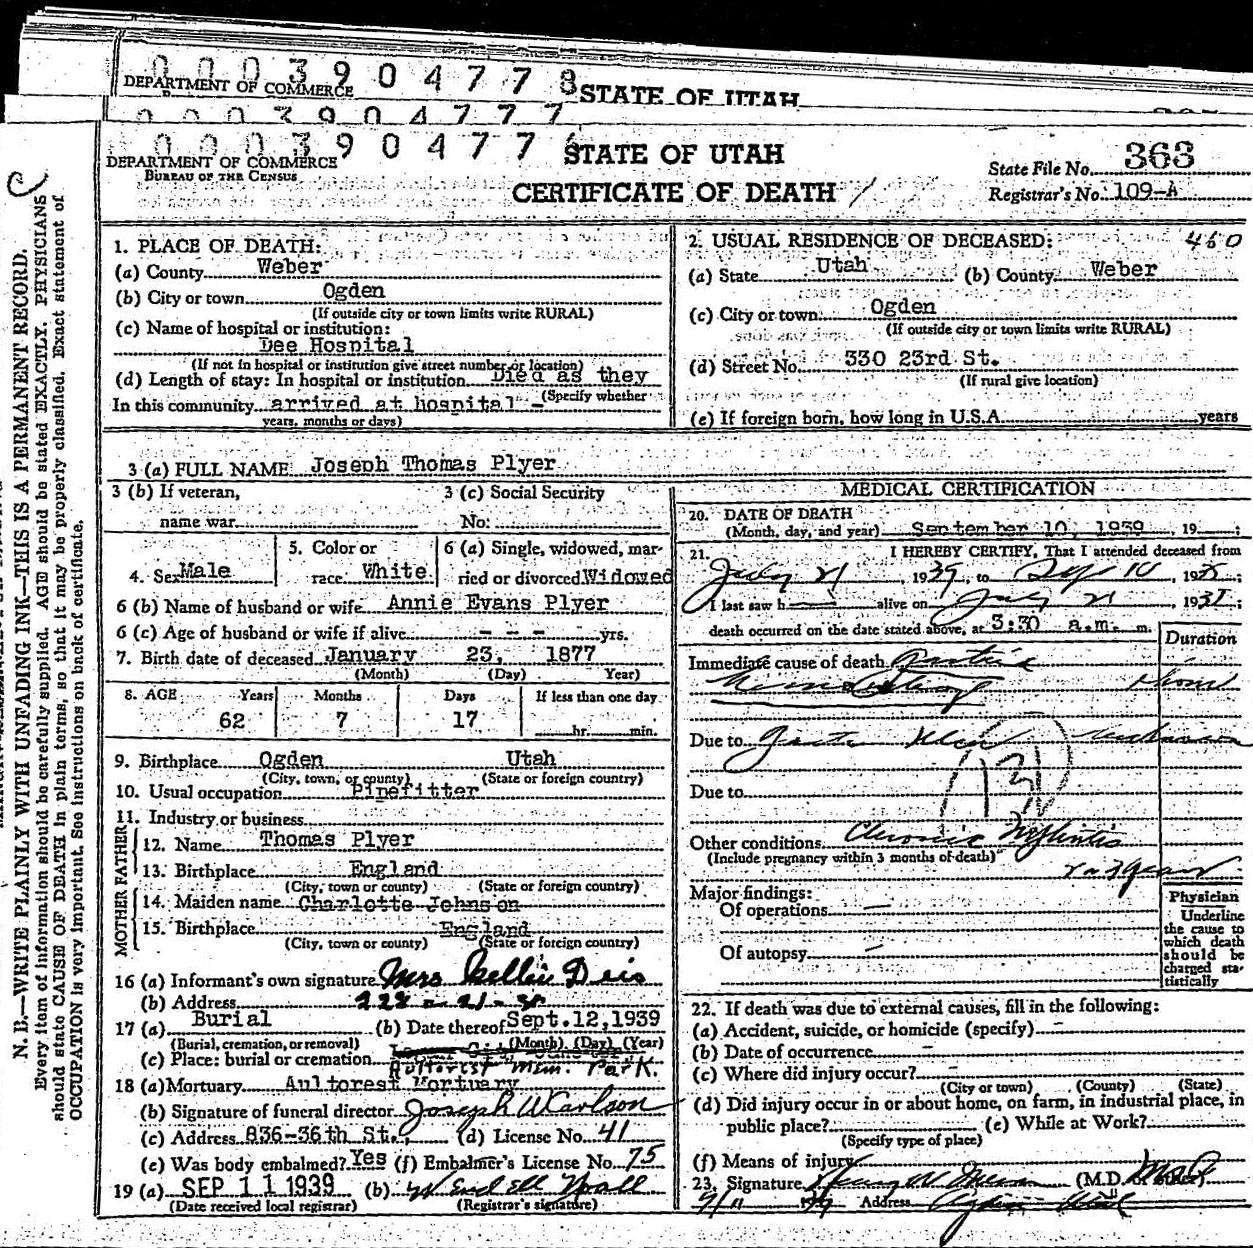 0 0 0 3 9 0 4 7 7 8
DEPARTMENT OF COMMERCE
STATE OF UTAH
0 0 0 3 9 0 4 7 7 7
0 0 0 3 9 0 4 7 7 6
DEPARTMENT OF COMMERCE
BUREAU OF THE CENSUS
STATE OF UTAH
CERTIFICATE OF DEATH
State File No. 363
Registrar's No. 109-A
N. B.—WRITE PLAINLY WITH UNFADING INK—THIS IS A PERMANENT RECORD.
Every item of information should be carefully supplied. AGE should be stated EXACTLY. PHYSICIANS
should state CAUSE OF DEATH in plain terms, so that it may be properly classified. Exact statement of
OCCUPATION is very important. See instructions on back of certificate.
1. PLACE OF DEATH:
(a) County Weber
(b) City or town Ogden
(If outside city or town limits write RURAL)
(c) Name of hospital or institution:
Dee Hospital
(If not in hospital or institution give street number or location)
(d) Length of stay: In hospital or institution Died as they
(Specify whether
In this community arrived at hospital -
years, months or days)
2. USUAL RESIDENCE OF DECEASED: 460
(a) State Utah (b) County Weber
(c) City or town Ogden
(If outside city or town limits write RURAL)
(d) Street No. 330 23rd St.
(If rural give location)
(e) If foreign born, how long in U.S.A. years
3 (a) FULL NAME Joseph Thomas Plyer
3 (b) If veteran, 3 (c) Social Security
name war No.
4. Sex Male 5. Color or race White 6 (a) Single, widowed, married or divorced Widowed
6 (b) Name of husband or wife Annie Evans Plyer
6 (c) Age of husband or wife if alive - - - yrs.
7. Birth date of deceased January 23, 1877
(Month) (Day) Year)
8. AGE Years Months Days If less than one day
62 7 17 hr. min.
9. Birthplace Ogden Utah
(City, town, or county) (State or foreign country)
10. Usual occupation Pipefitter
11. Industry or business
FATHER
12. Name Thomas Plyer
13. Birthplace England
(City, town or county) (State or foreign country)
MOTHER
14. Maiden name Charlotte Johnson
15. Birthplace England
(City, town or county) (State or foreign country)
16 (a) Informant's own signature Mrs Nellie Deis
(b) Address 228 - 21 - St
17 (a) Burial (b) Date thereof Sept. 12, 1939
(Burial, cremation, or removal) (Month) (Day) (Year)
(c) Place: burial or cremation
Aultorest Mem. Park.
18 (a) Mortuary Aultorest Mortuary
(b) Signature of funeral director Joseph W Carlson
(c) Address 836-36th St., (d) License No. 41
(e) Was body embalmed? Yes (f) Embalmer's License No. 75
19 (a) SEP 11 1939 (b)
(Date received local registrar) (Registrar's signature)
MEDICAL CERTIFICATION
20. DATE OF DEATH
(Month, day, and year) September 10, 1939, 19 ;
21. I HEREBY CERTIFY, That I attended deceased from
July 21, 1939, to Sep 10, 19
I last saw h alive on July 21, 19
death occurred on the date stated above, at 3:30 a.m. m.
Duration
Immediate cause of death
Due to
Due to
131
Other conditions Chronic Nephritis
(Include pregnancy within 3 months of death)
Major findings:
Of operations —
Of autopsy —
Physician
Underline
the cause to
which death
should be
charged sta-
tistically
22. If death was due to external causes, fill in the following:
(a) Accident, suicide, or homicide (specify) -
(b) Date of occurrence -
(c) Where did injury occur? -
(City or town) (County) (State)
(d) Did injury occur in or about home, on farm, in industrial place, in
public place? (e) While at Work?
(Specify type of place)
(f) Means of injury
23. Signature (M.D.
9/11 39 Address Ogden Utah